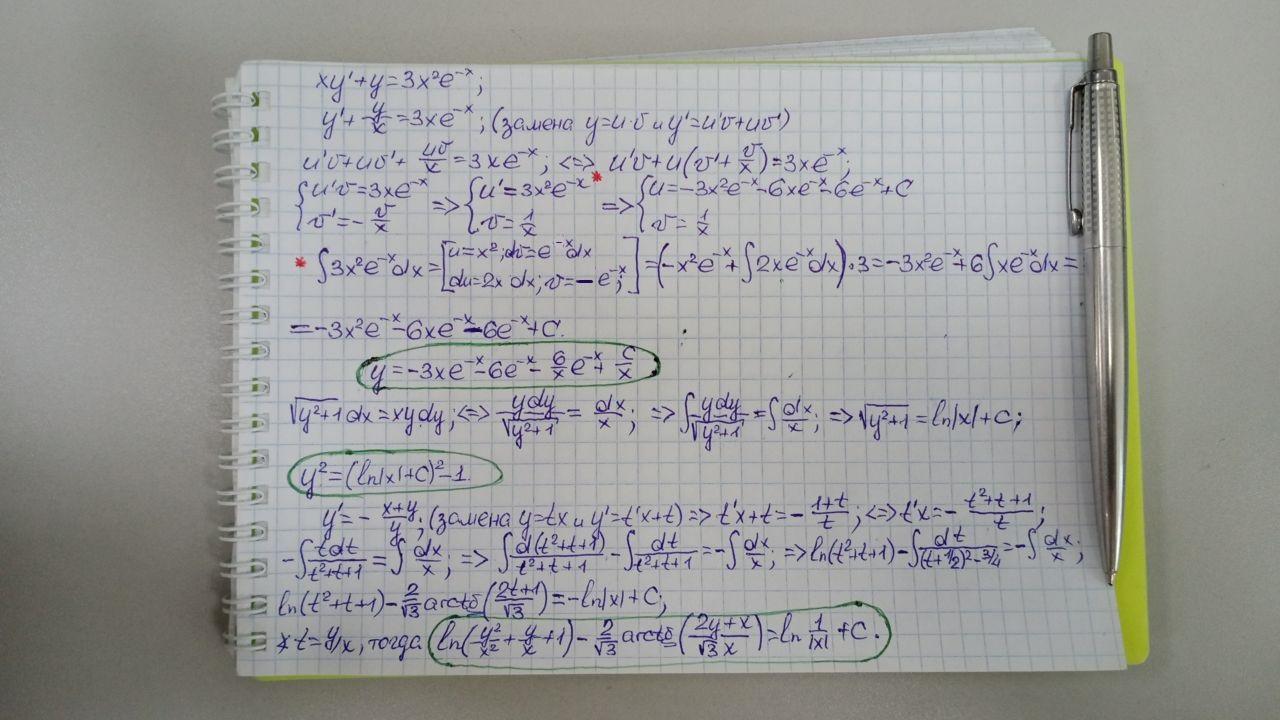 xy'+y=3x²e⁻ˣ;
y'+y/x=3xe⁻ˣ; (замена y=u·v и y'=u'v+uv')
u'v+uv'+uv/x=3xe⁻ˣ; <=> u'v+u(v'+v/x)=3xe⁻ˣ;
{u'v=3xe⁻ˣ v'=-v/x => {u'=3x²e⁻ˣ* v=1/x => {u=-3x²e⁻ˣ-6xe⁻ˣ-6e⁻ˣ+C v=1/x
* ∫3x²e⁻ˣdx=[u=x²; dv=e⁻ˣdx du=2x dx; v=-e⁻ˣ;]=(-x²e⁻ˣ+∫2xe⁻ˣdx)·3=-3x²e⁻ˣ+6∫xe⁻ˣdx=
=-3x²e⁻ˣ-6xe⁻ˣ-6e⁻ˣ+C.
y=-3xe⁻ˣ-6e⁻ˣ-6/x e⁻ˣ+C/x
√(y²+1) dx=xydy; <=> ydy/√(y²+1)=dx/x; => ∫ydy/√(y²+1)=∫dx/x; => √(y²+1)=ln|x|+C;
y²=(ln|x|+C)²-1.
y'=-(x+y)/y; (замена y=tx и y'=t'x+t) => t'x+t=-(1+t)/t; <=> t'x=-(t²+t+1)/t;
-∫tdt/(t²+t+1)=∫dx/x; => ∫d(t²+t+1)/(t²+t+1)-∫dt/(t²+t+1)=-∫dx/x; => ln(t²+t+1)-∫dt/((t+1/2)²-3/4)=-∫dx/x;
ln(t²+t+1)-2/√3 arctg((2t+1)/√3)=-ln|x|+C;
* t=y/x, тогда ln(y²/x²+y/x+1)-2/√3 arctg((2y+x)/(√3 x))=ln 1/|x|+C.